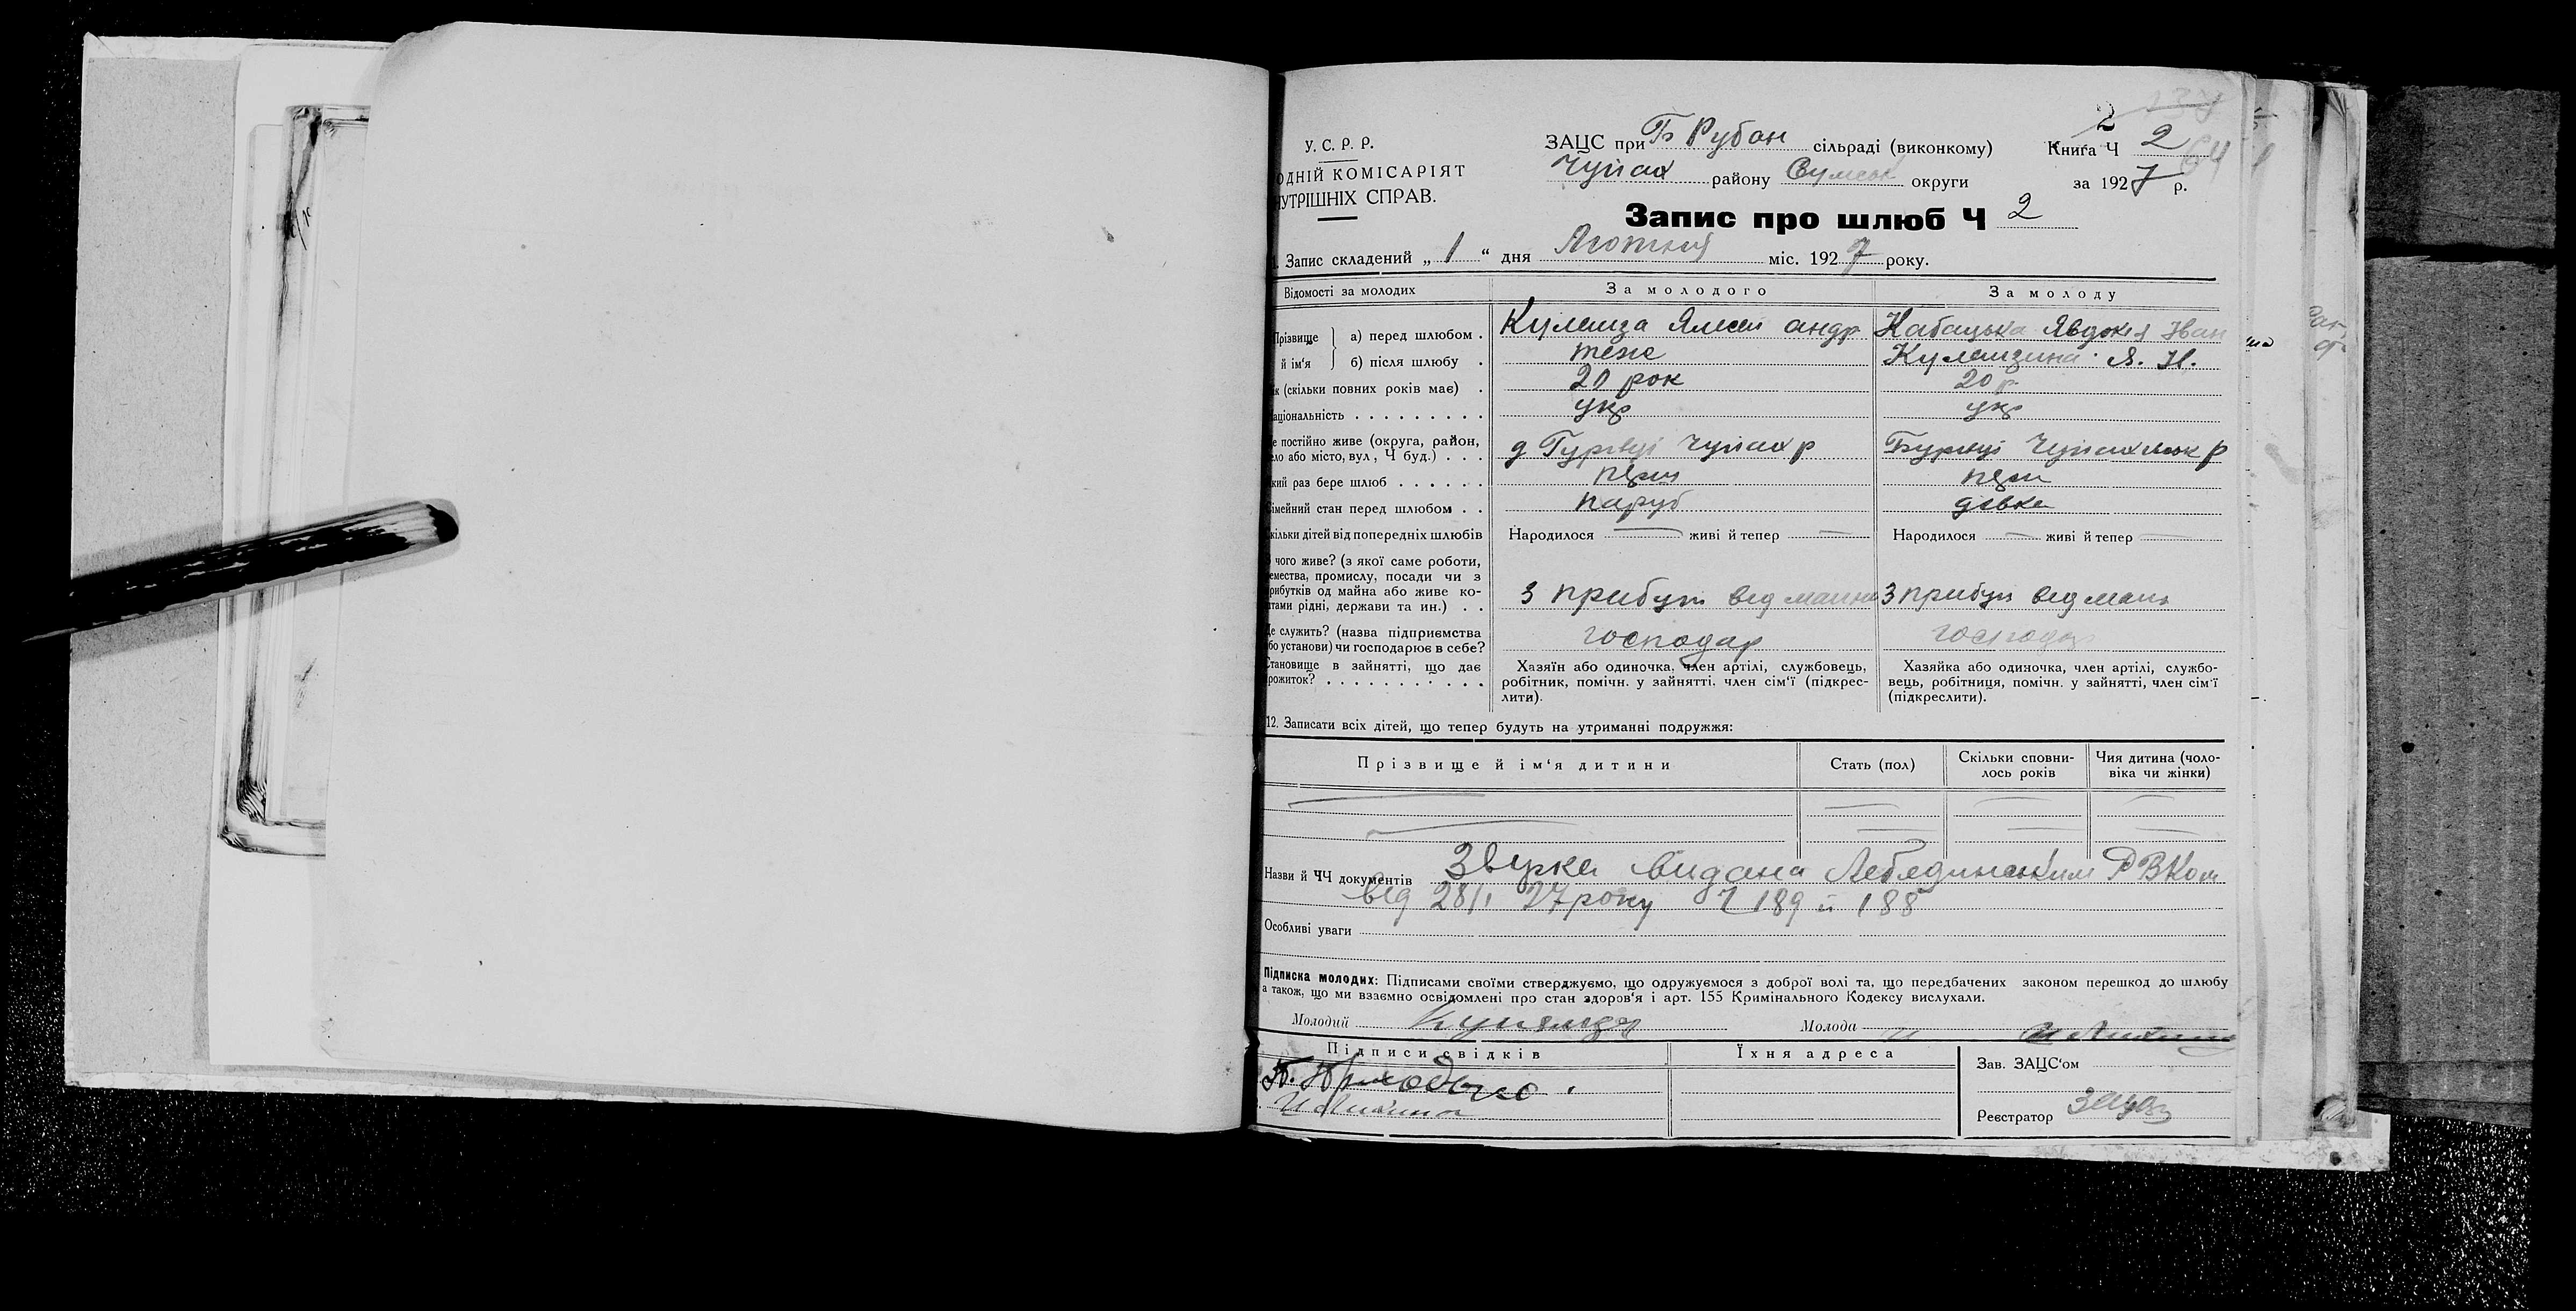 2
У. С. Р. Р.
ОДНІЙ КОМІСАРІЯТ
УТРІШНІХ СПРАВ.
ЗАЦС при Б Рубан сільраді (виконкому)
Книга Ч 2
Чупах району Сумськ округи
за 1927 р.
Запис про шлюб Ч 2
1. Запис складений „ 1 “ дня Лютня міс. 1927 року.
Відомості за молодих
За молодого
За молоду
Прізвище й ім‘я
а) перед шлюбом .
Кулешза андр
Кабацька Явдокія Іван
б) після шлюбу .
теже
Кулешзина
20 рок
20 р
ік (скільки повних років має) .
аціональність . . . . . . . . .
укр
укр
е постійно живе (округа, район,
ло або місто, вул , Ч буд.) . . .
д Чупах р
Чупахськ р
кий раз бере шлюб . . . . . .
перш
перш
імейний стан перед шлюбом . .
паруб
дівка
кільки дітей від попередніх шлюбів
Народилося — живі й тепер —
Народилося — живі й тепер —
чого живе? (з якої саме роботи,
емества, промислу, посади чи з
рибутків од майна або живе ко-
штами рідні, держави та ин.) . .
З прибут від майна
З прибут від майн
Де служить? (назва підприємства
бо установи) чи господарює в себе?
господар
господар
Становище в зайнятті, що дає
рожиток? . . . . . . . . . . .
Хазяїн або одиночка, член артілі, службовець,
робітник, помічн. у зайнятті, член сім‘ї (підкрес-
лити).
Хазяйка або одиночка, член артілі, службо-
вець, робітниця, помічн. у зайнятті, член сім‘ї
(підкреслити).
12. Записати всіх дітей, що тепер будуть на утриманні подружжя:
Прізвище й ім‘я дитини
Стать (пол)
Скільки сповни-
лось років
Чия дитина (чоло-
віка чи жінки)
Назви й ЧЧ документів
видана Лебединським РВКом
від 28/I 27 року Ч 189 й 188
Особливі уваги
Підписка молодих: Підписами своїми стверджуємо, що одружуємося з доброї волі та, що передбачених законом перешкод до шлюбу
а також, що ми взаємно освідомлені про стан здоров‘я і арт. 155 Кримінального Кодексу вислухали.
Молодий
Молода
Підписи свідків
Їхня адреса
Зав. ЗАЦС‘ом
П. Приходько
Реєстратор